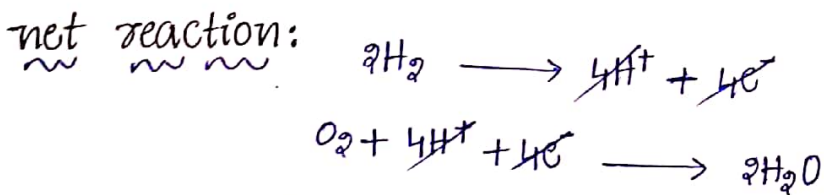 net reaction:
2H₂ ⟶ 4H⁺ + 4e⁻
O₂ + 4H⁺ + 4e⁻ ⟶ 2H₂O